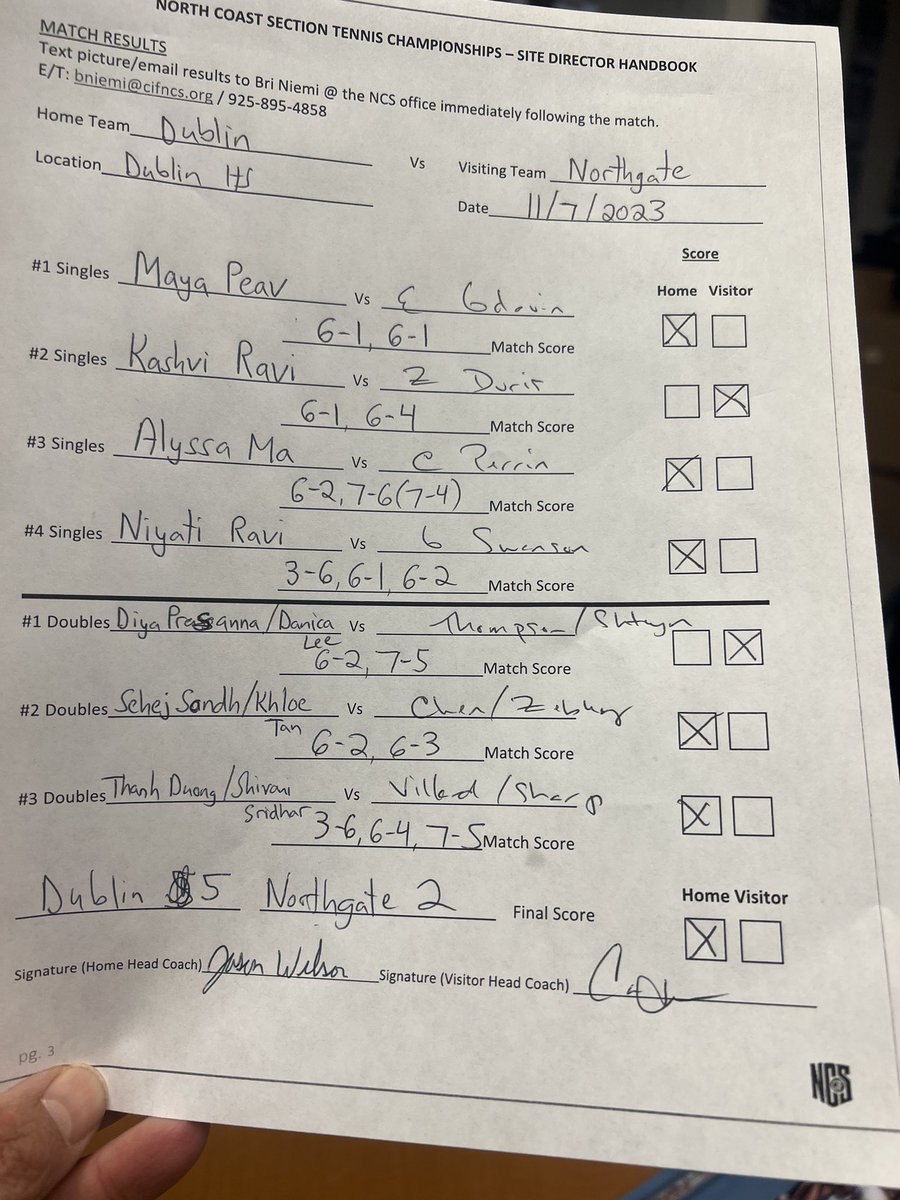 NORTH COAST SECTION TENNIS CHAMPIONSHIPS – SITE DIRECTOR HANDBOOK
MATCH RESULTS
Text picture/email results to Bri Niemi @ the NCS office immediately following the match.
E/T: bniemi@cifncs.org / 925-895-4858
Home Team Dublin Vs Visiting Team Northgate
Location Dublin HS Date 11/7/2023
Score
Home Visitor
#1 Singles Maya Peav Vs E
6-1, 6-1 Match Score
#2 Singles Kashvi Ravi Vs Z
6-1, 6-4 Match Score
#3 Singles Alyssa Ma Vs C Perrin
6-2, 7-6 (7-4) Match Score
#4 Singles Niyati Ravi Vs G Swenson
3-6, 6-1, 6-2 Match Score
#1 Doubles Diya Prasanna/Danica Vs Thompson/
Lee
6-2, 7-5 Match Score
#2 Doubles Sehej Sandh/Khloe Vs Chen/
Tan
6-2, 6-3 Match Score
#3 Doubles Thanh Duong/Shivani Vs /Sharp
Sridhar
3-6, 6-4, 7-5 Match Score
Dublin 5 Northgate 2 Final Score
Home Visitor
Signature (Home Head Coach) Jason Wilson Signature (Visitor Head Coach)
pg. 3
NCS